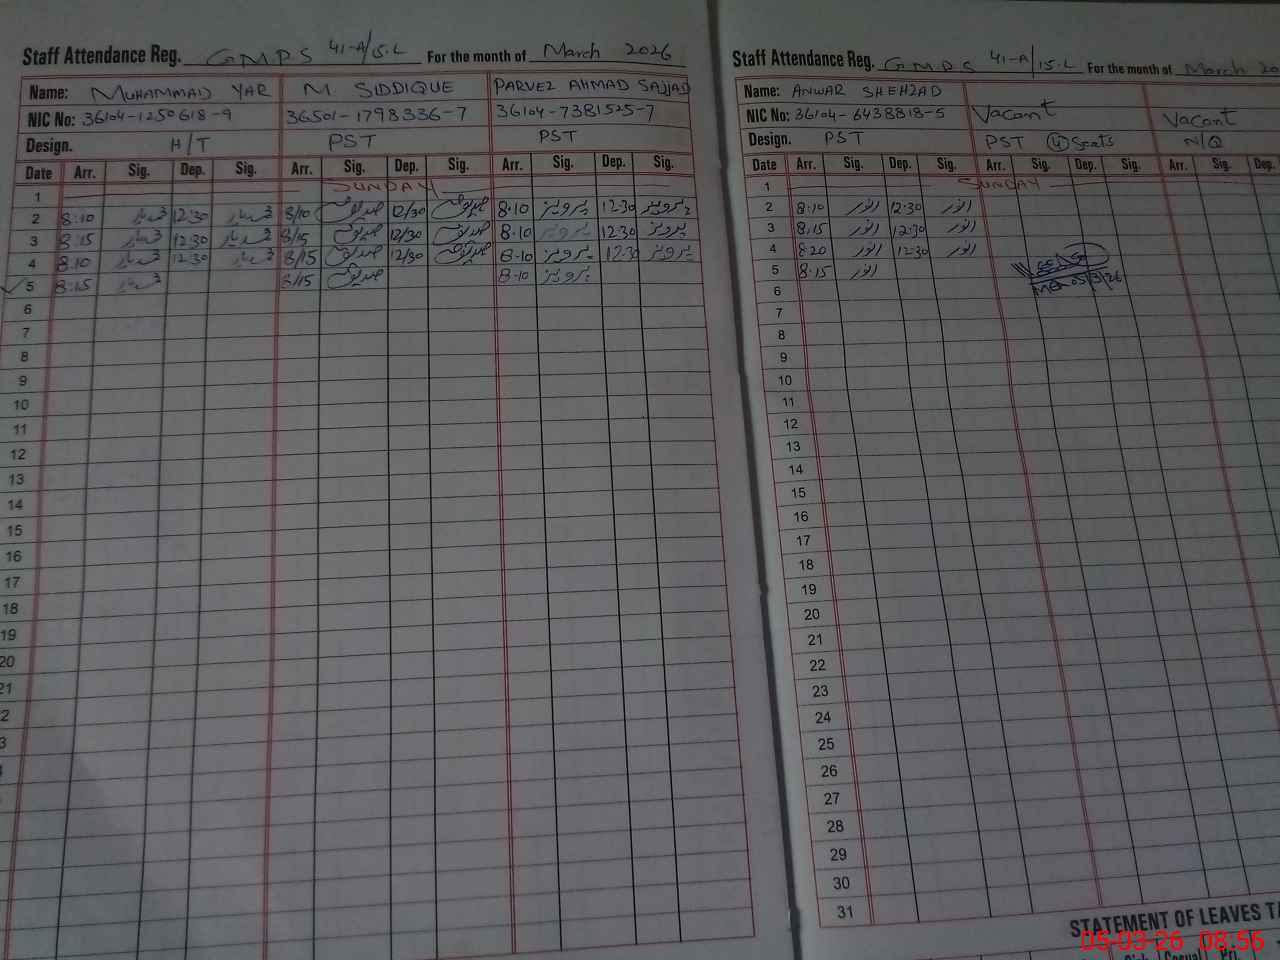 Staff Attendance Reg. G.M.P.S 41-A/15.L For the month of March 2026
Name: MUHAMMAD YAR M. SIDDIQUE PARVEZ AHMAD SAJJAD
NIC No: 36104-1250618-9 36501-1798336-7 36104-7381525-7
Design. H/T PST PST
Date Arr. Sig. Dep. Sig. Arr. Sig. Dep. Sig. Arr. Sig. Dep. Sig.
1 SUNDAY
2 8:10 12:30 8/10 صدیق 12/30 صدیق 8-10 پرویز 12-30 پرویز
3 8:15 12:30 8/15 صدیق 12/30 صدیق 8-10 پرویز 12-30 پرویز
4 8:10 12:30 8/15 صدیق 12/30 صدیق 8-10 پرویز 12-30 پرویز
5 8:15 8/15 صدیق 8-10 پرویز
6
7
8
9
10
11
12
13
14
15
16
17
18
19
20
21
2
3
Staff Attendance Reg. G.M.P.S 41-A/15.L For the month of March 20
Name: ANWAR SHEHZAD Vacant Vacant
NIC No: 36104-6438818-5
Design. PST PST (4) Seats N/Q
Date Arr. Sig. Dep. Sig. Arr. Sig. Dep. Sig. Arr. Sig. Dep.
1 SUNDAY
2 8:10 انور 12:30 انور
3 8:15 انور 12:30 انور
4 8:20 انور 12:30 انور
5 8:15 انور
6 MEA 05/3/26
7
8
9
10
11
12
13
14
15
16
17
18
19
20
21
22
23
24
25
26
27
28
29
30
31
STATEMENT OF LEAVES TA
05-03-26 08:56
Casual